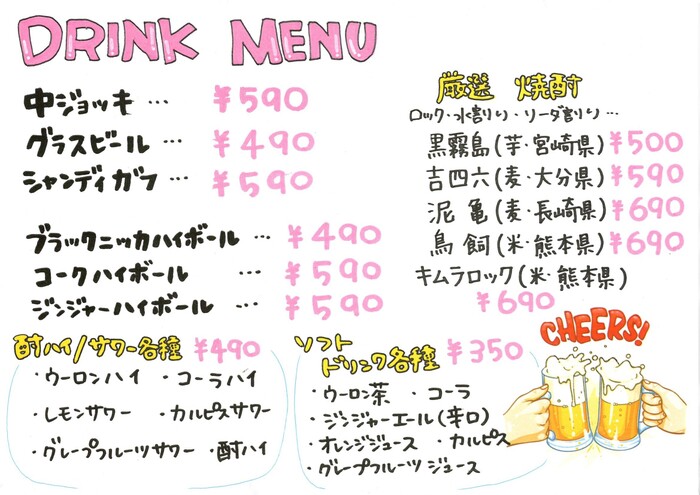 DRINK MENU
中ジョッキ … ¥590
グラスビール … ¥490
シャンディガフ … ¥590
ブラックニッカハイボール … ¥490
コークハイボール … ¥590
ジンジャーハイボール … ¥590
酎ハイ/サワー各種 ¥490
・ウーロンハイ ・コーラハイ
・レモンサワー ・カルピスサワー
・グレープフルーツサワー ・酎ハイ
厳選 焼酎
ロック・水割り・ソーダ割り…
黒霧島(芋・宮崎県) ¥500
吉四六(麦・大分県) ¥590
泥亀(麦・長崎県) ¥690
鳥飼(米・熊本県) ¥690
キムラロック(米・熊本県)
¥690
ソフト
ドリンク各種 ¥350
・ウーロン茶 ・コーラ
・ジンジャーエール(辛口)
・オレンジジュース ・カルピス
・グレープフルーツジュース
CHEERS!